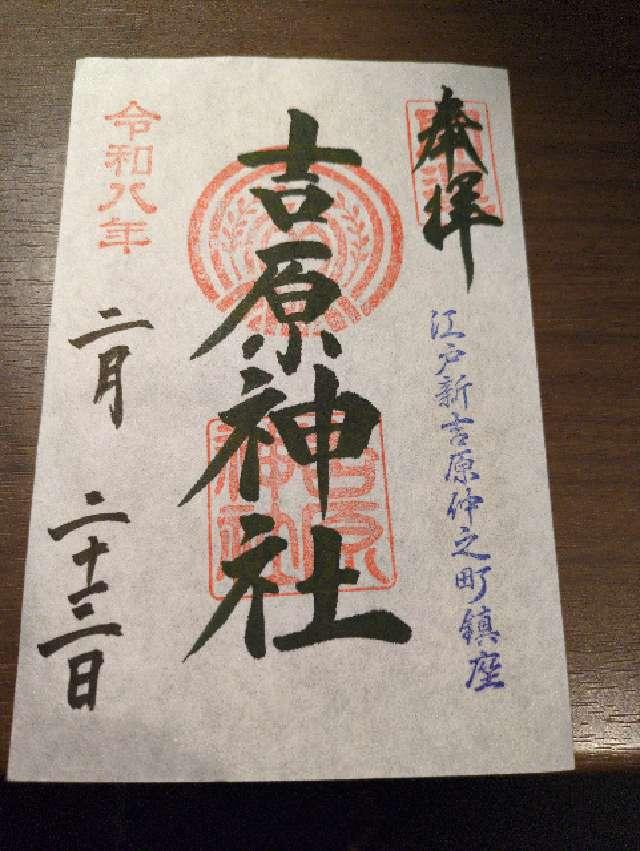 奉拝
江戸新吉原仲之町鎮座
吉原神社
吉原
神社
令和八年
二月
二十三日